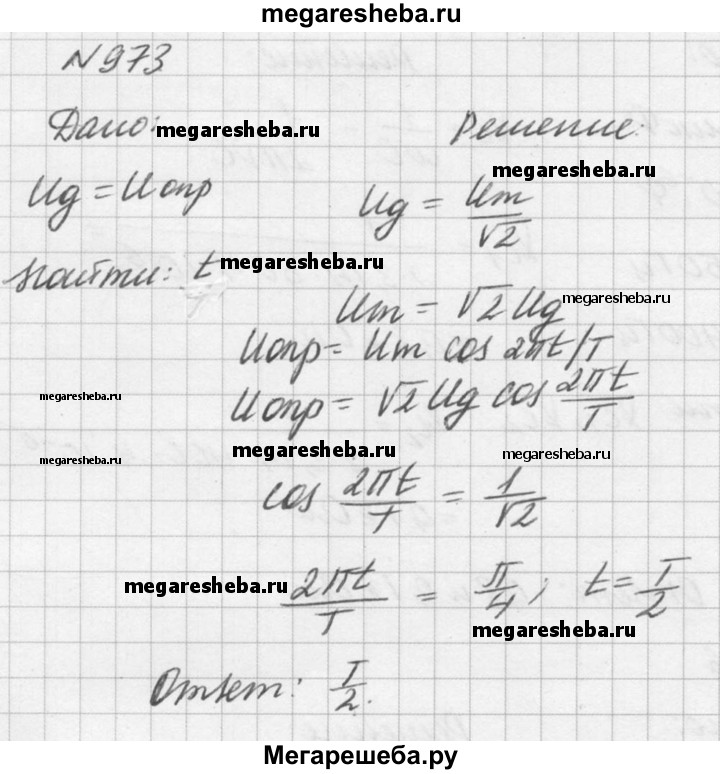 megaresheba.ru
№973
Дано: megaresheba.ru
Решение:
megaresheba.ru
Uд = Uопр
Uд = Um/√2
Найти: t/T megaresheba.ru
Um = √2 Uд megaresheba.ru
Uопр = Um cos 2πt/T
megaresheba.ru
Uопр = √2 Uд cos 2πt/T
megaresheba.ru
megaresheba.ru
megaresheba.ru
cos 2πt/T = 1/√2
megaresheba.ru
2πt/T = π/4; t = T/2
megaresheba.ru
Ответ: T/2.
Мегарешеба.ру